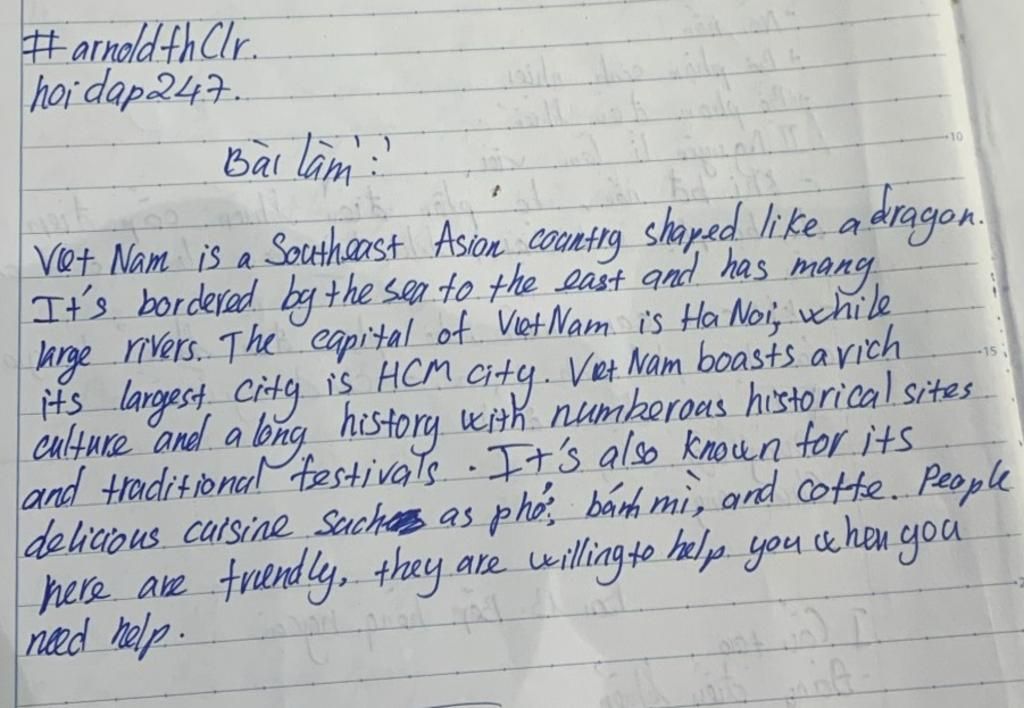 #arnoldthClr.
hoidap247.
Bài làm:
Việt Nam is a Southeast Asian country shaped like a dragon.
It's bordered by the sea to the east and has many
large rivers. The capital of Việt Nam is Ha Noi, while
its largest city is HCM city. Việt Nam boasts a rich
culture and a long history with numberous historical sites
and traditional festivals. It's also known for its
delicious cuisine such as phở, bánh mì, and coffe. People
here are friendly, they are willing to help you when you
need help.
10
15